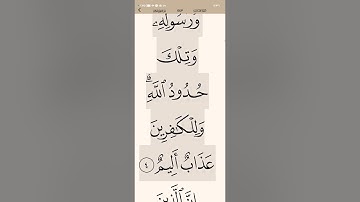 وَرَسُولِهِۦ
وَتِلْكَ
حُدُودُ ٱللَّهِۗ
وَلِلْكَٰفِرِينَ
عَذَابٌ أَلِيمٌ ٤
إِنَّ ٱلَّذِينَ